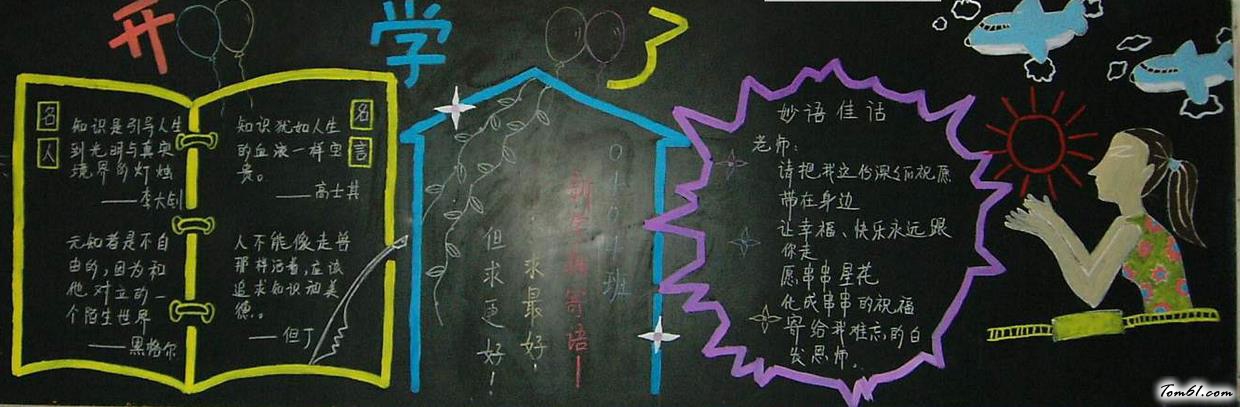 开学了
名人
知识是引导人生
到光明与真实
境界的灯烛
——李大钊
无知者是不自
由的,因为和
他对立的一
个陌生世界
——黑格尔
名言
知识犹如人生
的血液一样宝
贵。
——高士其
人不能像走兽
那样活着,应该
追求知识和美
德。
——但丁
班
新学期寄语!
求最好!
但求更好!
妙语佳话
老师:
请把我这份深深的祝愿
带在身边
让幸福、快乐永远跟
你走
愿串串星花
化成串串的祝福
寄给我难忘的白
发恩师。
Tom61.com